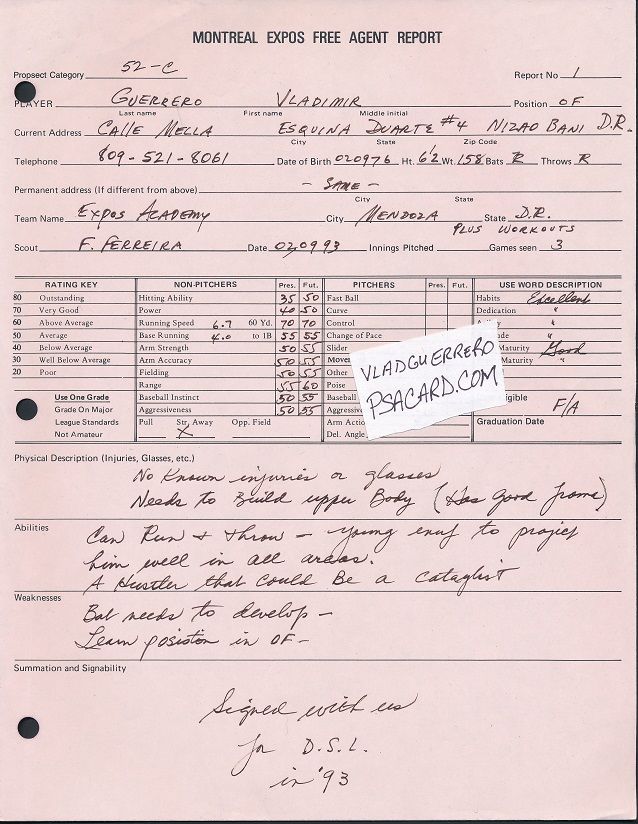 MONTREAL EXPOS FREE AGENT REPORT
Propsect Category 52-C Report No 1
PLAYER GUERRERO VLADIMIR Position OF
Last name First name Middle initial
Current Address CALLE MELLA ESQUINA DUARTE #4 NIZAO BANI D.R.
City State Zip Code
Telephone 809-521-8061 Date of Birth 020976 Ht. 6'2 Wt. 158 Bats R Throws R
Permanent address (If different from above) - SAME -
City State
Team Name EXPOS ACADEMY City MENDOZA State D.R.
PLUS WORKOUTS
Scout F. FERREIRA Date 020993 Innings Pitched Games seen 3
RATING KEY NON-PITCHERS Pres. Fut. PITCHERS Pres. Fut. USE WORD DESCRIPTION
80 Outstanding Hitting Ability 35 50 Fast Ball Habits Excellent
70 Very Good Power 40 50 Curve Dedication "
60 Above Average Running Speed 6.7 60 Yd. 70 70 Control "
50 Average Base Running 4.0 to 1B 55 55 Change of Pace "
40 Below Average Arm Strength 50 55 Slider Maturity Good
30 Well Below Average Arm Accuracy 50 55 Maturity "
20 Poor Fielding 50 55 Other
Range 55 60 Poise
Use One Grade Baseball Instinct 50 55 Baseball F/A
Grade On Major Aggressiveness 50 55 Graduation Date
League Standards Pull Str. Away Opp. Field Arm Action
Not Amateur X Del. Angle
VLADGUERRERO
PSACARD.COM
Physical Description (Injuries, Glasses, etc.)
No known injuries or glasses
Needs to Build upper Body (Has good frame)
Abilities
Can Run + throw - young enuf to project
him well in all areas.
A Hustler that could Be a cataglist
Weaknesses
Bat needs to develop -
Learn posiston in OF -
Summation and Signability
Signed with us
for D.S.L.
in '93